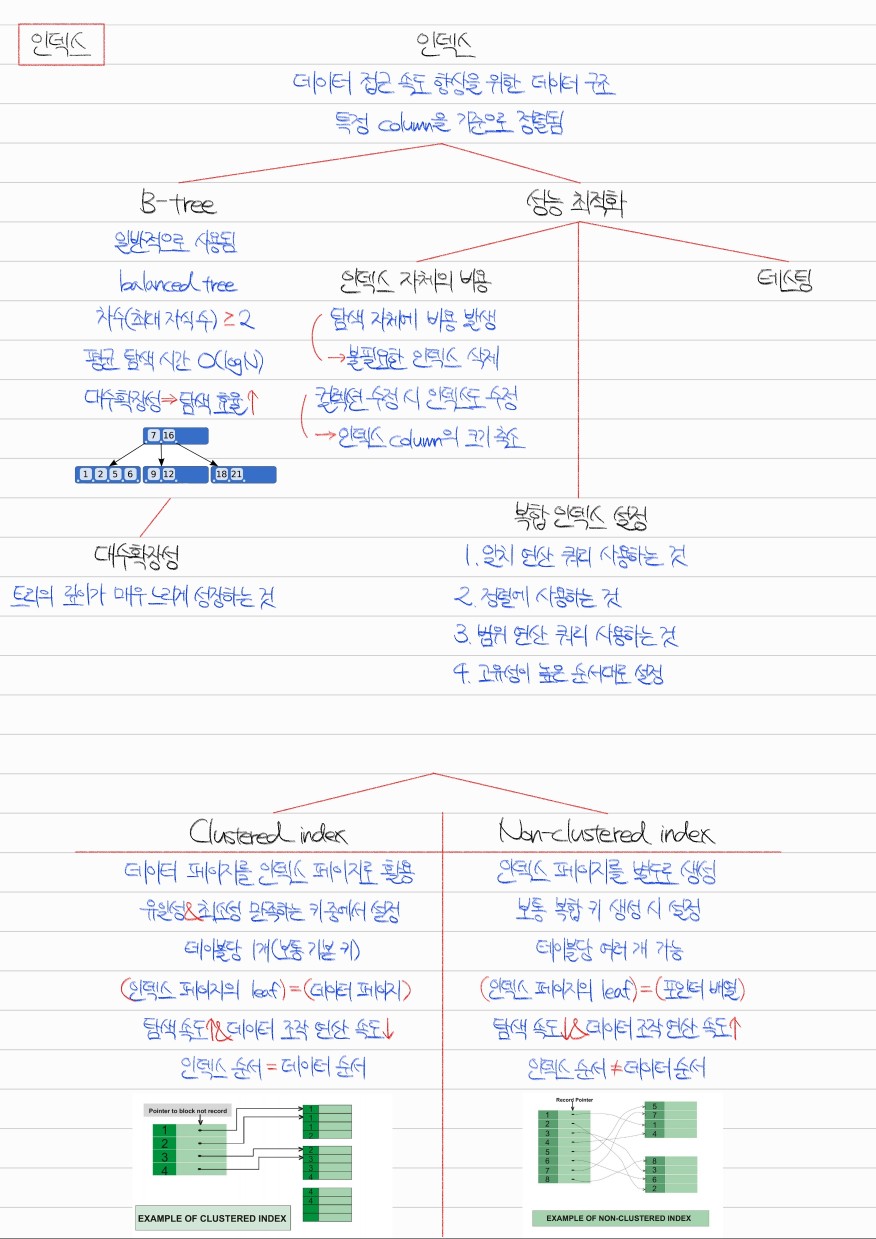 인덱스
인덱스
데이터 접근 속도 향상을 위한 데이터 구조
특정 column을 기준으로 정렬됨
B-tree
일반적으로 사용됨
balanced tree
차수(최대 자식 수) ≥ 2
평균 탐색 시간 O(logN)
대수확장성⇒탐색 효율↑
7 16
1 2 5 6 9 12 18 21
대수확장성
트리의 깊이가 매우 느리게 성장하는 것
성능 최적화
인덱스 자체의 비용
탐색 자체에 비용 발생
→불필요한 인덱스 삭제
컬렉션 수정 시 인덱스도 수정
→인덱스 column의 크기 축소
테스팅
복합 인덱스 설정
1. 일치 연산 쿼리 사용하는 것
2. 정렬에 사용하는 것
3. 범위 연산 쿼리 사용하는 것
4. 고유성이 높은 순서대로 설정
Clustered index
데이터 페이지를 인덱스 페이지로 활용
유일성&최소성 만족하는 키 중에서 설정
테이블당 1개(보통 기본 키)
(인덱스 페이지의 leaf)=(데이터 페이지)
탐색 속도↑&데이터 조작 연산 속도↓
인덱스 순서=데이터 순서
Pointer to block not record
1
2
3
4
1
1
1
2
2
3
3
4
4
4
EXAMPLE OF CLUSTERED INDEX
Non-clustered index
인덱스 페이지를 별도로 생성
보통 복합 키 생성 시 설정
테이블당 여러 개 가능
(인덱스 페이지의 leaf)=(포인터 배열)
탐색 속도↓&데이터 조작 연산 속도↑
인덱스 순서≠데이터 순서
Record Pointer
1
2
3
4
5
6
7
8
5
7
1
4
8
3
6
2
EXAMPLE OF NON-CLUSTERED INDEX